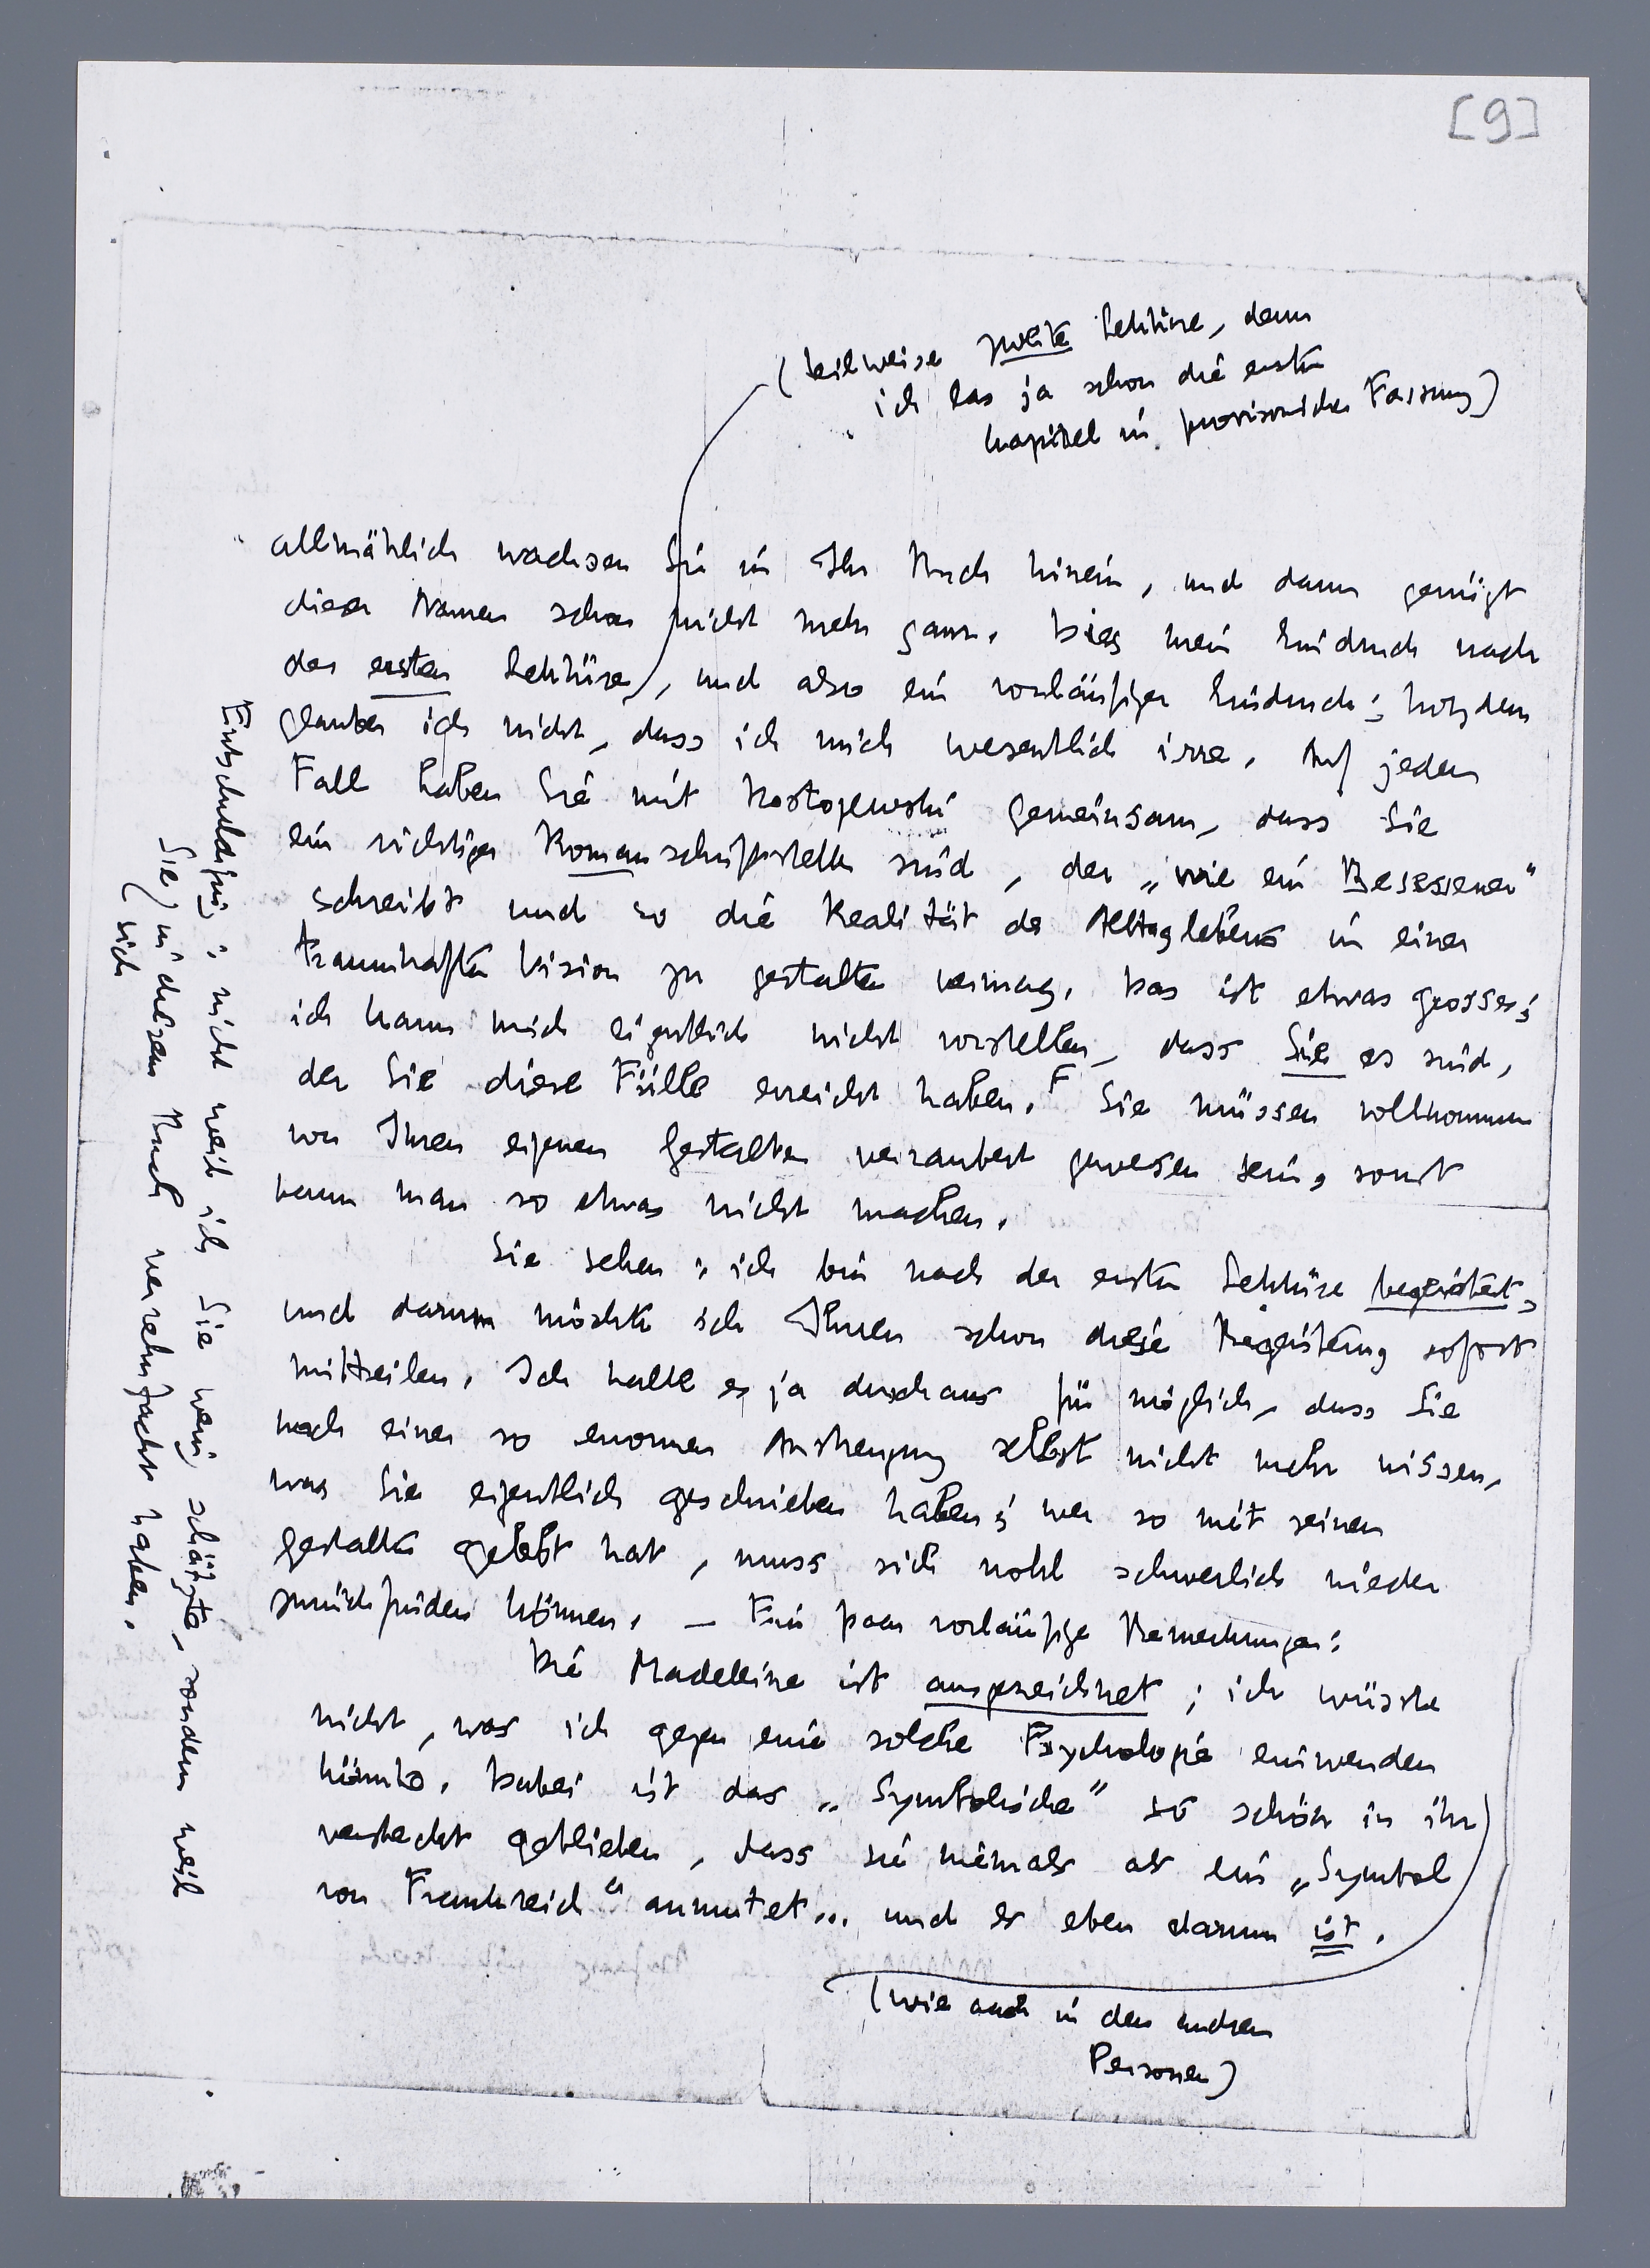 [9]
(teilweise zweite Lektüre, denn
ich las ja schon die ersten
Kapitel in provisorischer Fassung)
allmählich wachsen Sie in Ihr Buch hinein, und dann genügt
dieser Namen schon nicht mehr ganz. Dies mein Eindruck nach
der ersten Lektüre, und also ein vorläufiger Eindruck; trotzdem
glaube ich nicht, dass ich mich wesentlich irre. Auf jeden
Fall haben Sie mit Dostojewski gemeinsam, dass Sie
ein richtiger Romanschriftsteller sind, der „wie ein Besessener"
schreibt und so die Realität des Alltaglebens in einer
traumhaften Vision zu gestalten vermag. Das ist etwas grosses;
ich kann mich eigentlich nicht vorstellen, dass Sie es sind,
der Sie diese Fülle erreicht haben. F Sie müssen vollkommen
von Ihren eigenen Gestalten verzaubert gewesen sein, sonst
kann man so etwas nicht machen.
Sie sehen: ich bin nach der ersten Lektüre begeistert,
und darum möchte ich Ihnen schon diese Begeisterung sofort
mitteilen. Ich halte es ja durchaus für möglich, dass Sie
nach einer so enormen Anstrengung selbst nicht mehr wissen,
was Sie eigentlich geschrieben haben; wer so mit seinen
Gestalten gelebt hat, muss sich wohl schwerlich wieder
zurückfinden können. – Ein paar vorläufige Bemerkungen:
Die Madeleine ist ausgezeichnet; ich wüsste
nicht, was ich gegen eine solche Psychologie einwenden
könnte. Dabei ist das „Symbolische" so schön in ihr
versteckt geblieben, dass sie niemals als ein „Symbol
von Frankreich" anmutet... und es eben darum ist.
(wie auch in den anderen
Personen)
Entschuldigung: nicht weil ich Sie wenig schätzte, sondern weil
Sie) in diesem Buch verzehnfacht haben.
(sich